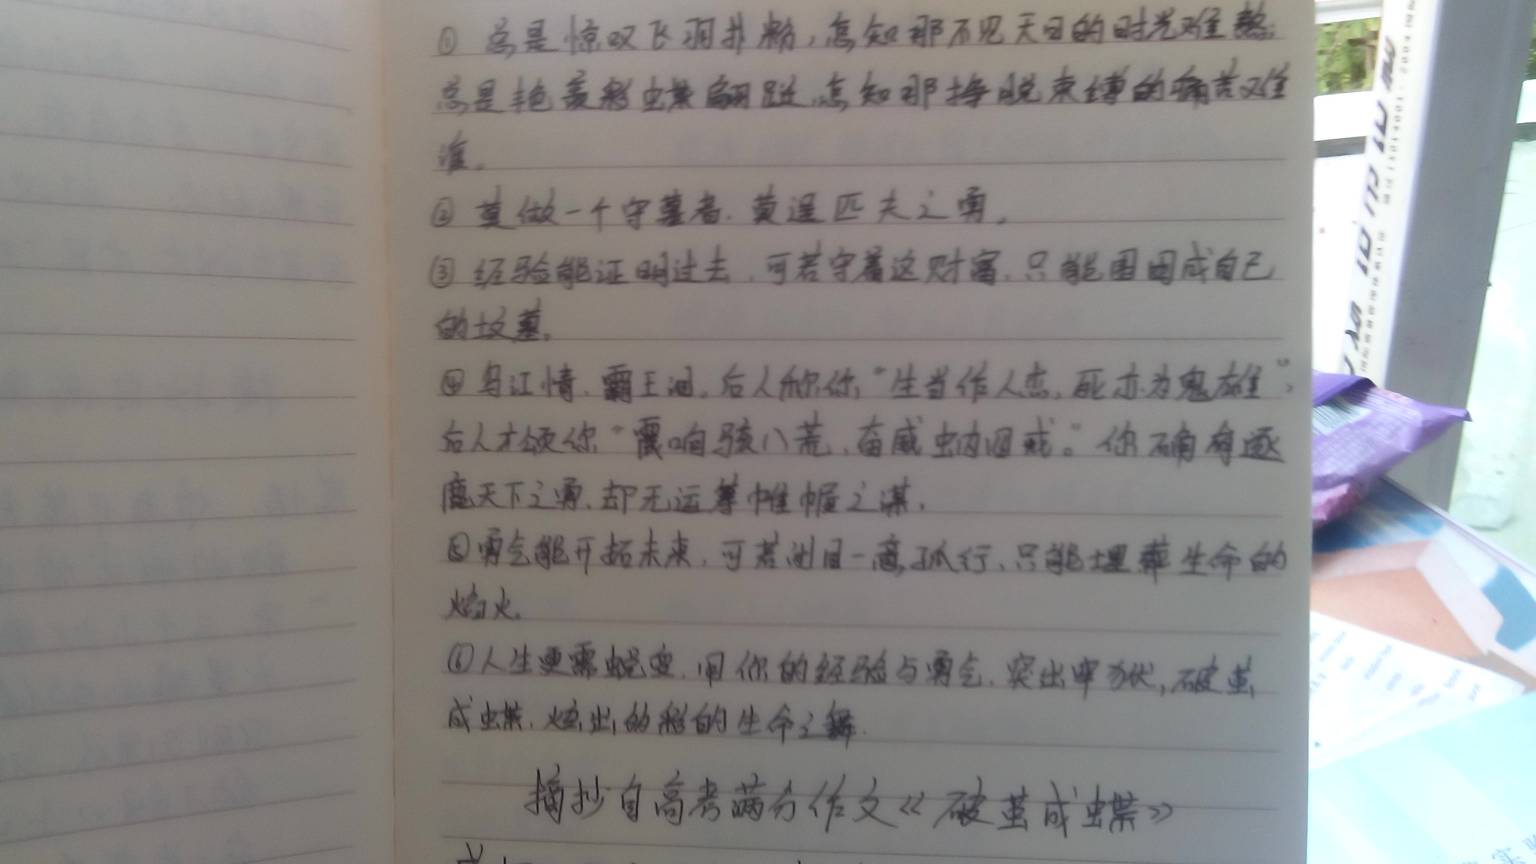 ① 总是惊叹飞羽扑粉，怎知那不见天日的时光难熬。
总是艳羡彩蝶翩跹，怎知那挣脱束缚的痛苦难
准。
② 莫做一个守墓者，莫逞匹夫之勇。
③ 经验能证明过去，可若守着这财富，只能困囿成自己
的坟墓。
④ 乌江情，霸王泪，后人称你“生当作人杰，死亦为鬼雄”，
后人才颂你“震响骇八荒，奋威蚋四戎。”你确有逐
鹿天下之勇，却无运筹帷幄之谋。
⑤ 勇气能开拓未来，可若闭目一意孤行，只能埋葬生命的
焰火。
⑥ 人生更需蜕变，用你的经验与勇气，突出牢狱，破茧
成蝶，炫出的彩的生命之舞。
摘抄自高考满分作文《破茧成蝶》